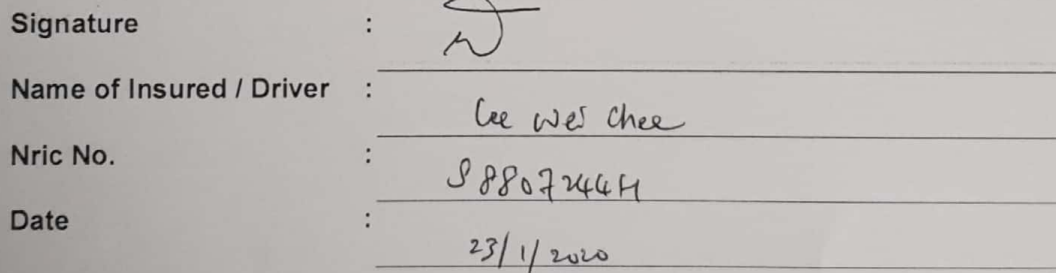 Signature :
Name of Insured / Driver : Lee Wei Chee
Nric No. : S8807244H
Date : 23/1/2020